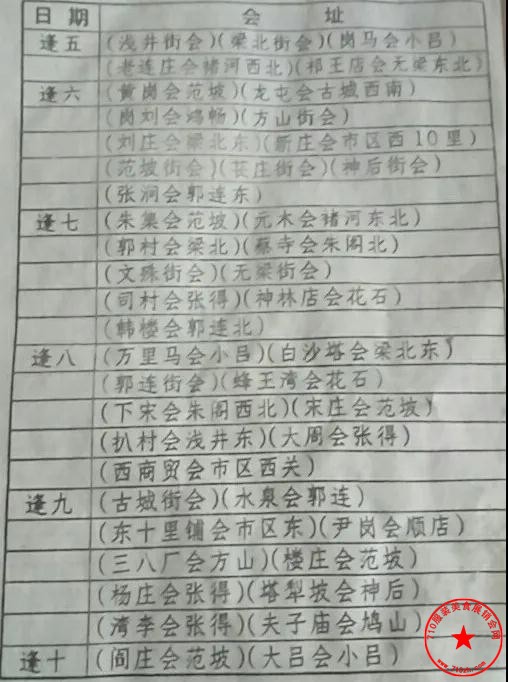 日期 会址
逢五 (浅井街会)(梁北街会)(岗马会小吕)
(老连庄会褚河西北)(祁王店会无梁东北)
逢六 (黄岗会范坡)(龙屯会古城西南)
(岗刘会鸿畅)(方山街会)
(刘庄会梁北东)(新庄会市区西10里)
(范坡街会)(苌庄街会)(神后街会)
(张涧会郭连东)
逢七 (朱集会范坡)(元木会褚河东北)
(郭村会梁北)(蔡寺会朱阁北)
(文殊街会)(无梁街会)
(司村会张得)(神林店会花石)
(韩楼会郭连北)
逢八 (万里马会小吕)(白沙塔会梁北东)
(郭连街会)(蜂王湾会花石)
(下宋会朱阁西北)(宋庄会范坡)
(扒村会浅井东)(大周会张得)
(西商贸会市区西关)
逢九 (古城街会)(水泉会郭连)
(东十里铺会市区东)(尹岗会顺店)
(三八厂会方山)(楼庄会范坡)
(杨庄会张得)(塔犁坡会神后)
(湾李会张得)(夫子庙会鸠山)
逢十 (阎庄会范坡)(大吕会小吕)
710服装美食展销会网
www.710zh.com